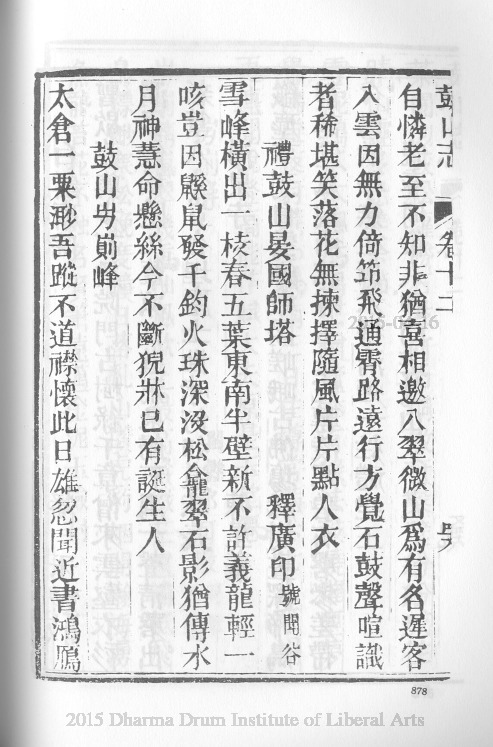 鼓山志 卷十二
自憐老至不知非猶喜相邀入翠微山爲有名遲客
入雲因無力倚筇飛通霄路遠行方覺石鼓聲喧識
者稀堪笑落花無揀擇隨風片片點人衣
禮鼓山晏國師塔 釋廣印號聞谷
雪峰橫出一枝春五葉東南半壁新不許義龍輕一
咳豈因鼷鼠發千鈞火珠深沒松龕翠石影猶傳水
月神慧命懸絲今不斷猊牀已有誕生人
鼓山屴崱峰
太倉一粟渺吾蹤不道襟懷此日雄忽聞近書鴻鴈
878
2015 Dharma Drum Institute of Liberal Arts